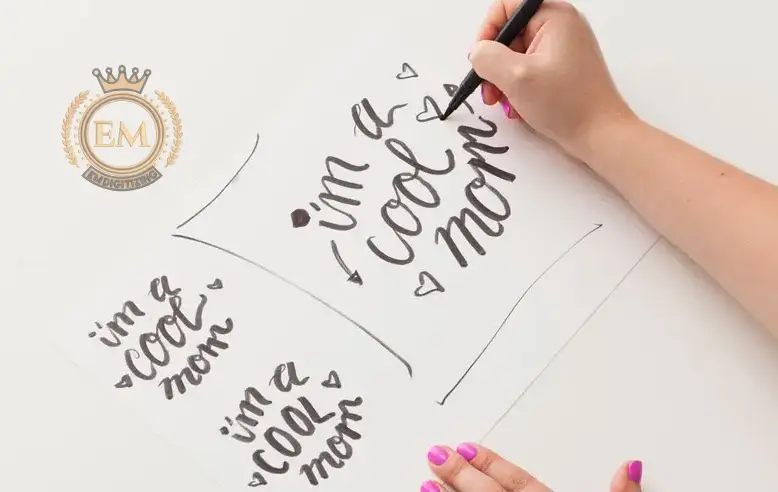 EM
EMDIGITIZING
i'm a
cool
mom
i'm a
COOL
mom
i'm a
COOL
mom